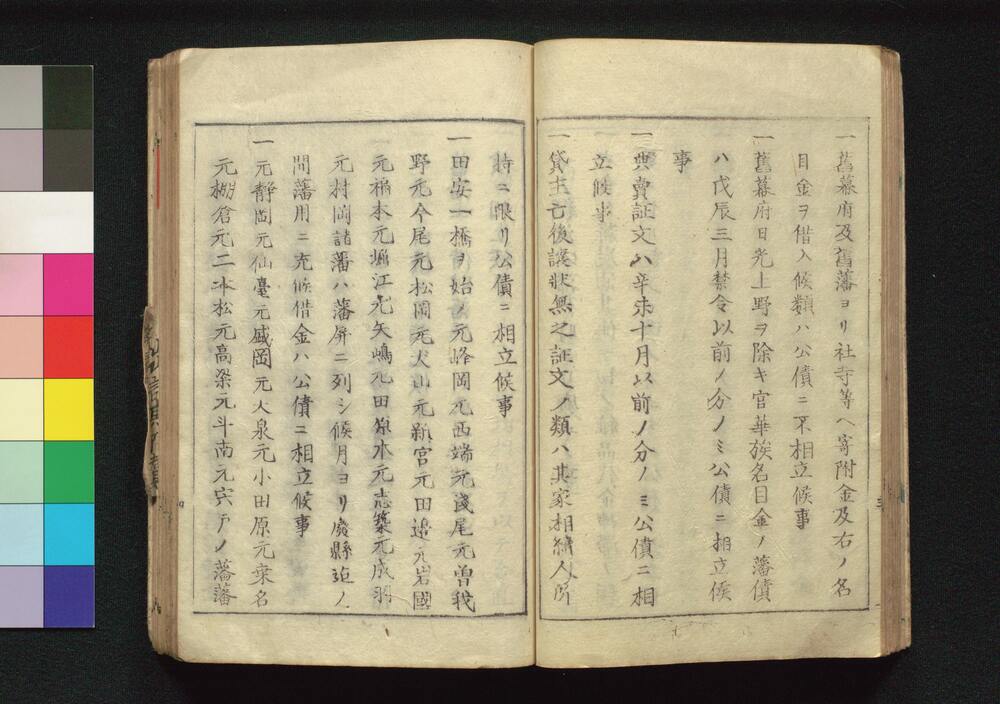 一舊幕府及舊藩ヨリ社寺等ヘ寄附金及右ノ名
目金ヲ借入候類ハ公債ニ不相立候事
一舊幕府日光上野ヲ除キ官華族名目金ノ藩債
ハ戊辰三月禁令以前ノ分ノミ公債ニ相立候
事
一典賣証文ハ辛未十月以前ノ分ノミ公債ニ相
立候事
一貸主亡後讓狀無之証文ノ類ハ其家相續人所
持ニ限リ公債ニ相立候事
一田安一橋ヲ始メ元峰岡元西端元淺尾元曽我
野元今尾元松岡元犬山元新宮元田邉元岩國
元福本元堀江元矢嶋元田原本元志築元成羽
元村岡諸藩ハ藩屏ニ列シ候月ヨリ廢縣迠ノ
間藩用ニ充候借金ハ公債ニ相立候事
一元静岡元仙臺元盛岡元大泉元小田原元桒名
元棚倉元二本松元高梁元斗南元宍戸ノ藩藩